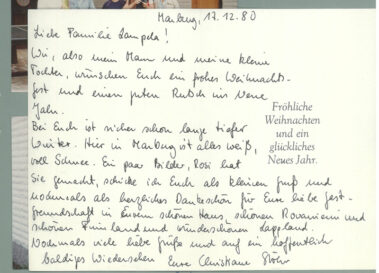 Marburg, 17.12.80
Liebe Familie Lampela!
Wir, also mein Mann und meine kleine
Tochter, wünschen Euch ein frohes Weihnachts-
fest und einen guten Rutsch ins Neue
Jahr.
Bei Euch ist sicher schon lange tiefer
Winter. Hier in Marburg ist alles weiß,
voll Schnee. Ein paar Bilder, Rosi hat
sie gemacht, schicke ich Euch als kleinen Gruß und
nochmals als herzliches Dankeschön für Eure liebe Gast-
freundschaft in Eurem schönen Haus, schönen Rovaniemi und
schönen Finnland und wunderschönen Lappland.
Nochmals viele liebe Grüße und auf ein hoffentlich
baldiges Wiedersehen Eure Christiane
Fröhliche
Weihnachten
und ein
glückliches
Neues Jahr.